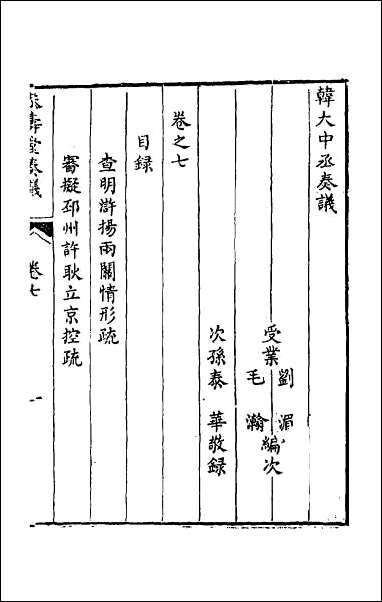 韓大中丞奏議
受業
劉湄
毛瀚
編次
次孫泰華敬録
卷之七
目録
查明滸揚兩關情形疏
審擬邳州許耿立京控疏
壽堂奏議
卷七
一